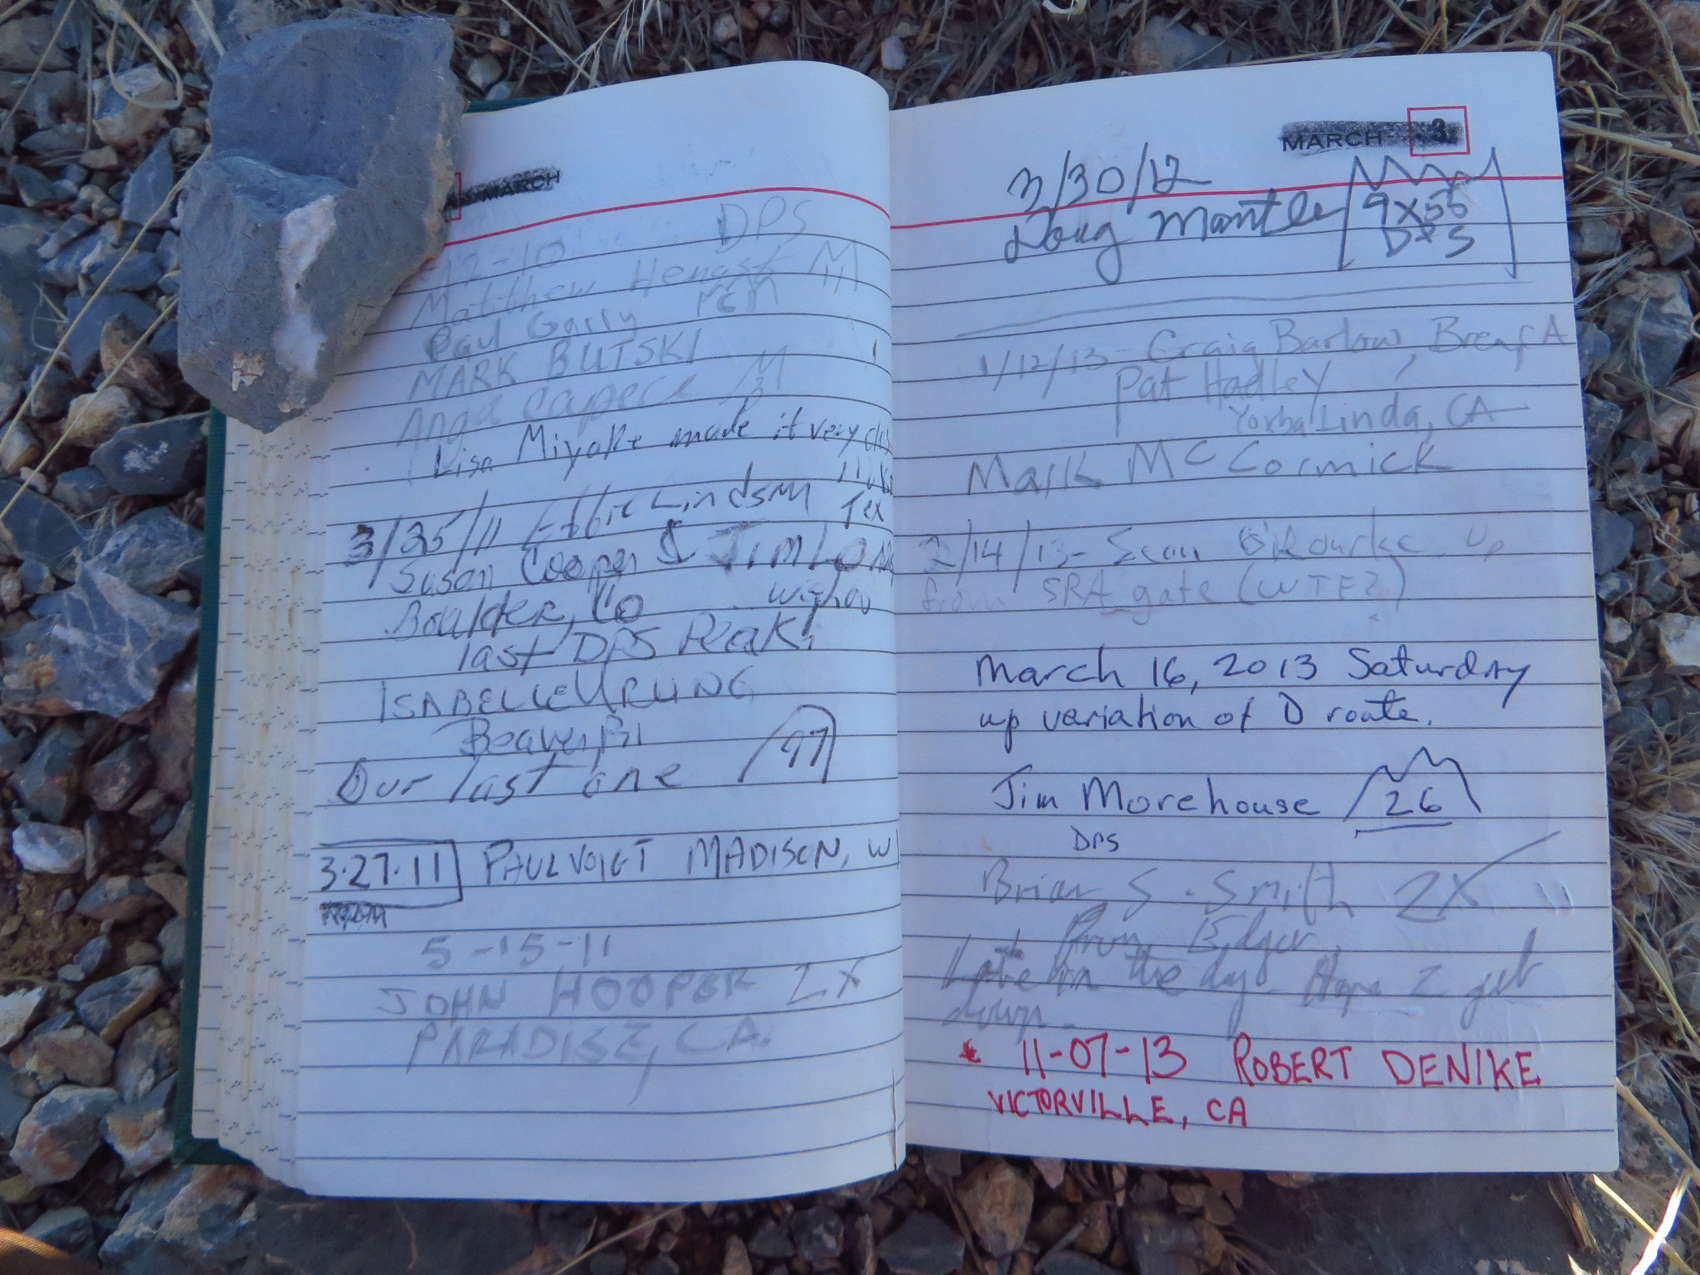 MARCH
DPS
-12-10
Matthew Hengst M
Paul Garry
MARK BUTSKI
Anna Capece M
Lisa Miyake made it very
3/25/11 Lindsay Tex
Susan Cooper & JIM
Boulder, Co
last DPS Peak!
ISABELLE
Our last one 97
3·27·11 PAUL VOIGT MADISON, W
5-15-11
JOHN HOOPER 2X
PARADISE, CA.
MARCH 3
3/30/12
Doug Mantle 9X
DPS
1/12/13- Craig Barlow, Brea, CA
Pat Hadley
Yorba Linda, CA
Mark McCormick
2/14/13- Sean O'Rourke up
from SRA gate (WTF?)
March 16, 2013 Saturday
up variation of D route.
Jim Morehouse 26
DPS
Brian S. Smith 2X
Late in the day. Hope I get
down.
11-07-13 ROBERT DENIKE
VICTORVILLE, CA